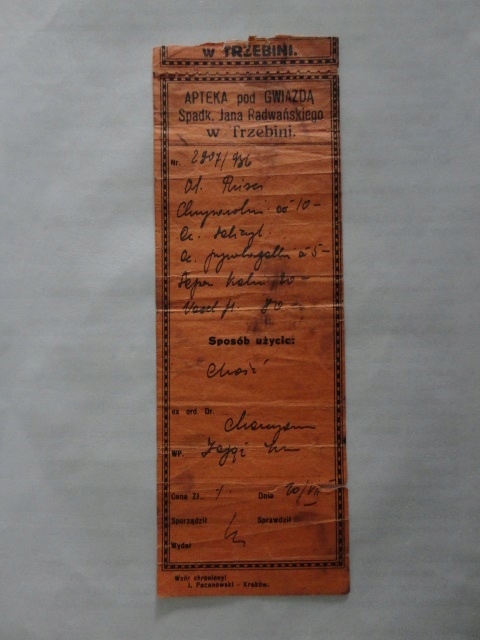 W TRZEBINI.
APTEKA pod GWIAZDĄ
Spadk. Jana Radwańskiego
w Trzebini.
Nr. 2907/936
Ol. Ricini
aa 10 -
Ac. salicyl.
Ac. pyrogalli a 5 -
Sapon kalin 20 -
Vasel fl. 80 -
Sposób użycia:
Maść
ex ord. Dr.
WP. Zając
Cena Zł. 1. Dnia 20/VII
Sporządził Sprawdził
Wydał
Wzór chroniony!
I. Pacanowski - Kraków.